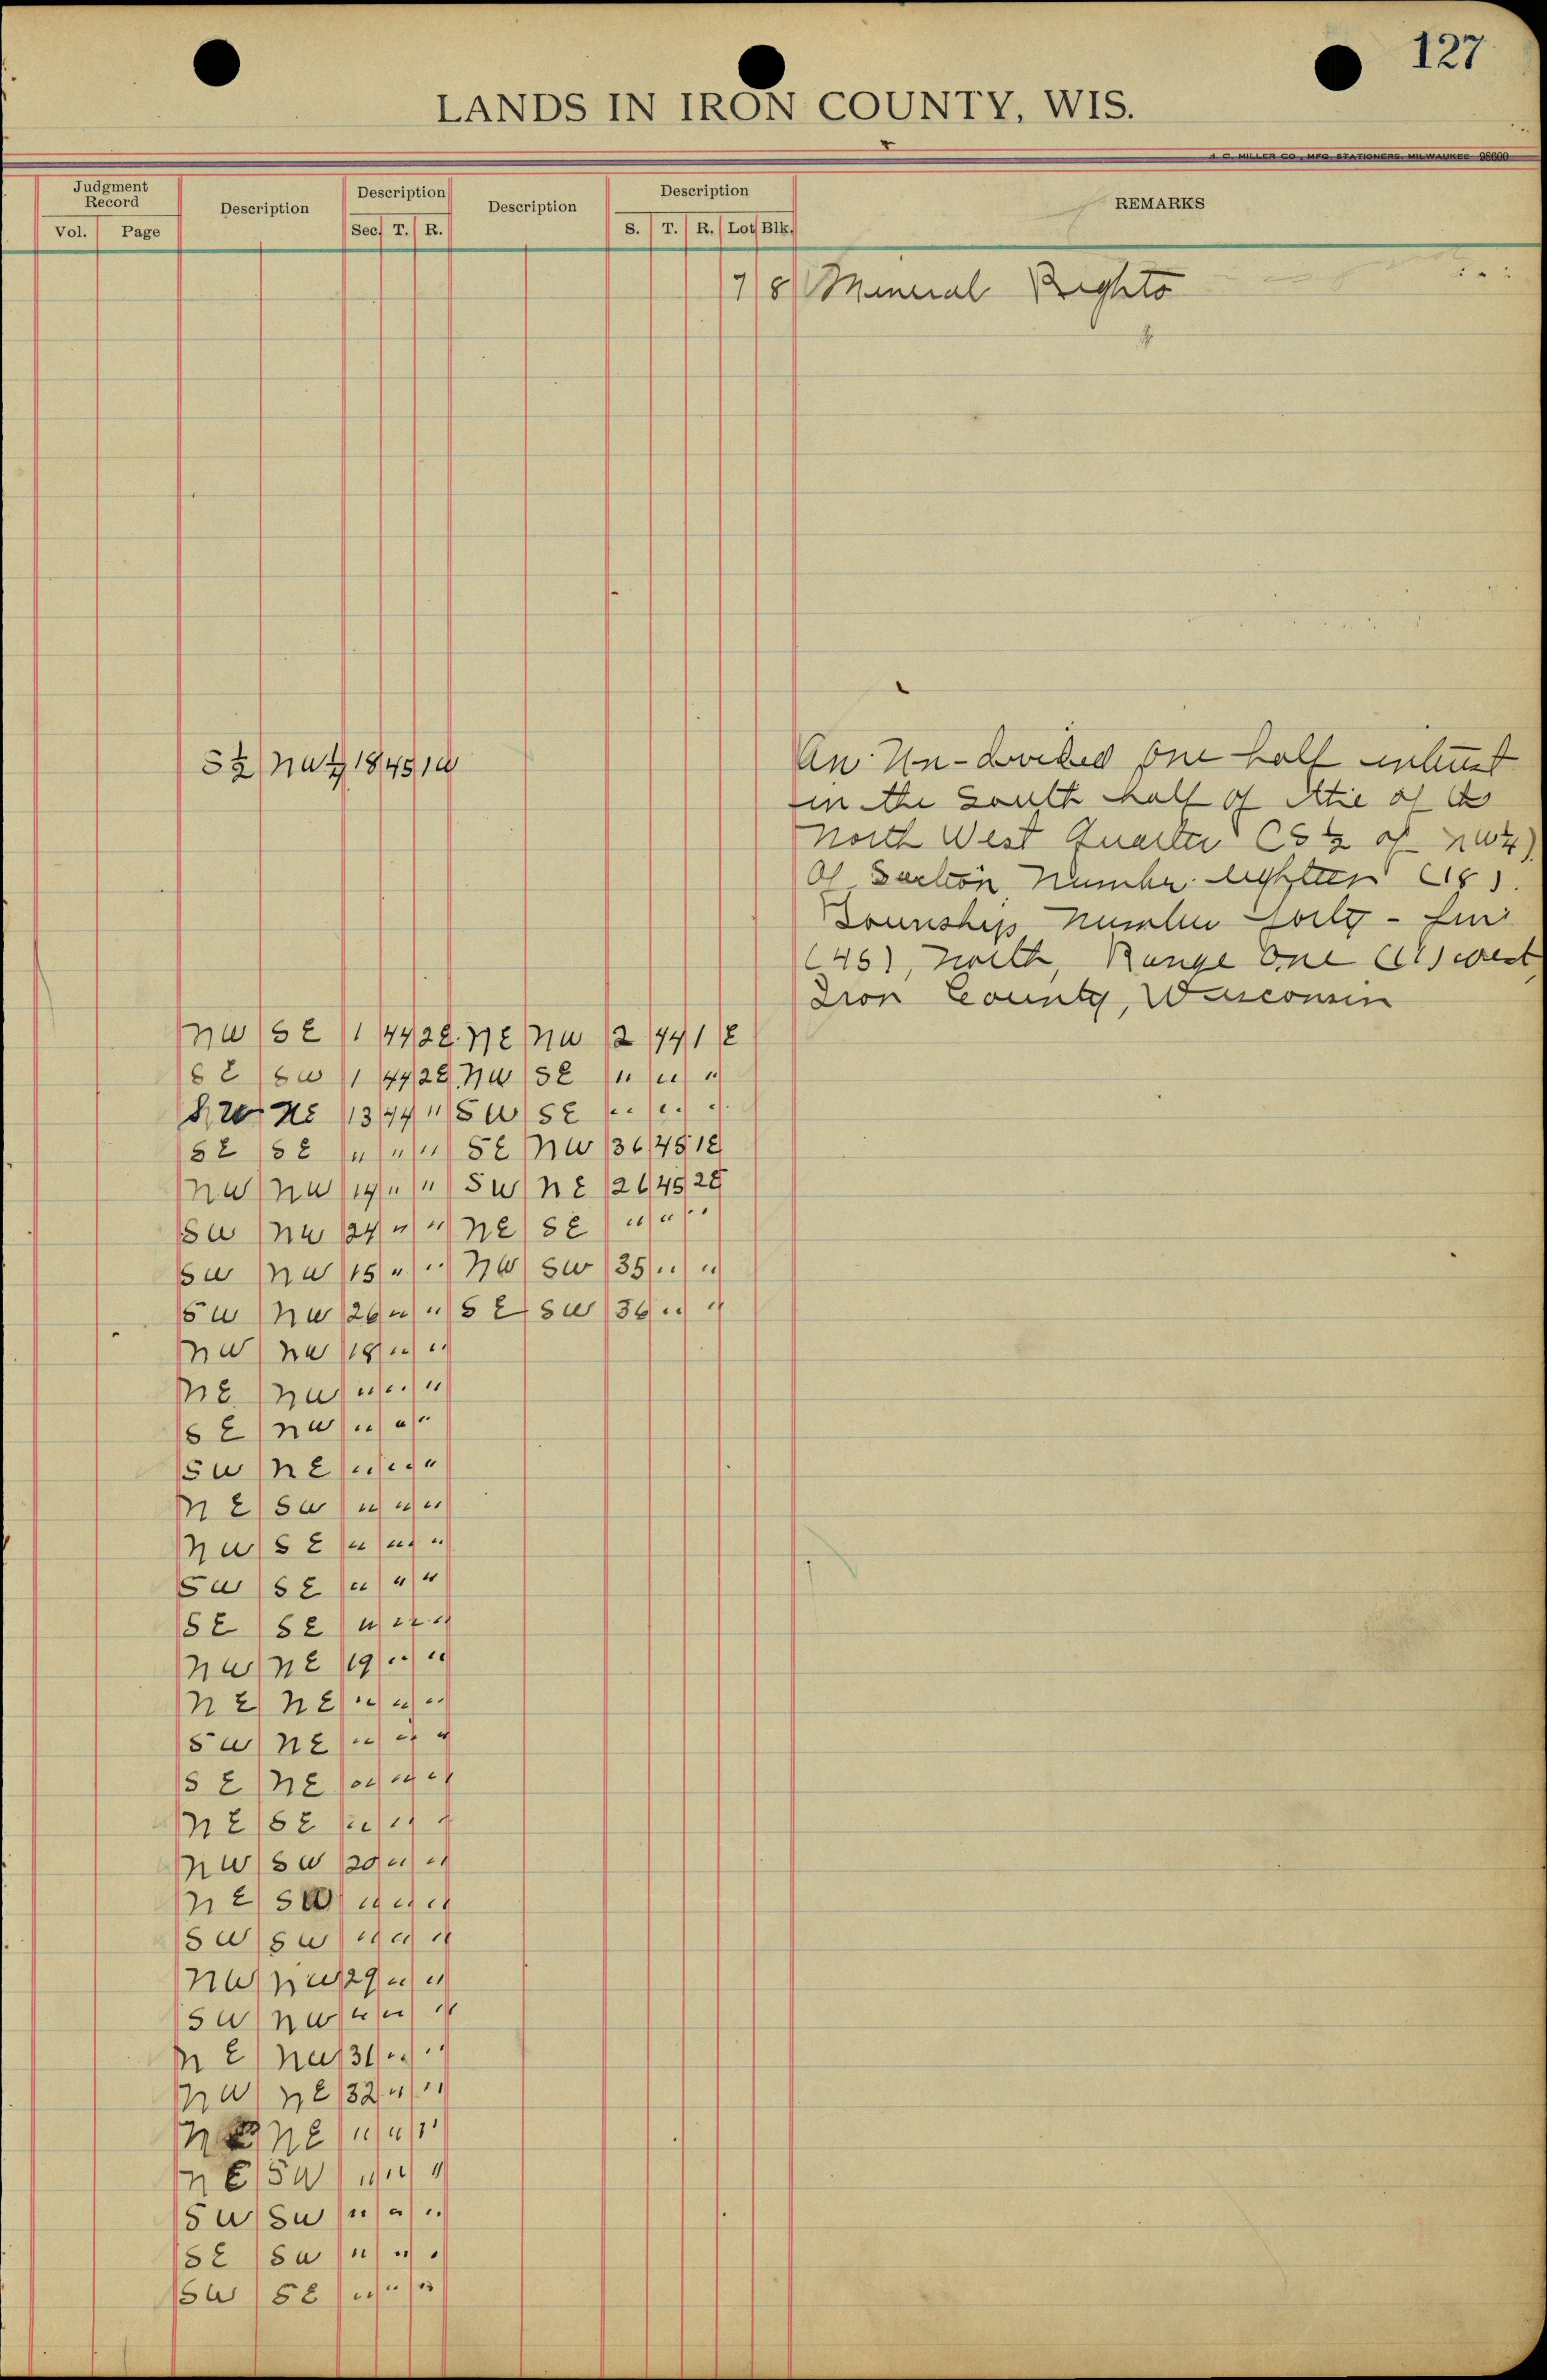 127
LANDS IN IRON COUNTY, WIS.
H. C. MILLER CO., MFG. STATIONERS, MILWAUKEE 98600
Judgment Record Description Description Description Description REMARKS
Vol. Page Sec. T. R. S. T. R. Lot Blk.
7 8 Mineral Rights
S½ NW¼ 18 45 1W An Un-divided one half interest
in the South half of the of the
North West Quarter (S½ of NW¼)
Of Section Number eighteen (18).
Township Number forty-five
(45), North, Range One (1) West
Iron County, Wisconsin
NW SE 1 44 2E NE NW 2 44 1 E
SE SW 1 44 2E NW SE " " "
NE 13 44 " SW SE " " "
SE SE " " " SE NW 36 45 1E
NW NW 14 " " SW NE 26 45 2E
SW NW 24 " " NE SE " " "
SW NW 15 " " NW SW 35 " "
SW NW 26 " " SE SW 36 " "
NW NW 18 " "
NE NW " " "
SE NW " " "
SW NE " " "
NE SW " " "
NW SE " " "
SW SE " " "
SE SE " " "
NW NE 19 " "
NE NE " " "
SW NE " " "
SE NE " " "
NE SE " " "
NW SW 20 " "
NE SW " " "
SW SW " " "
NW NW 29 " "
SW NW " " "
NE NW 31 " "
NW NE 32 " "
NE NE " " "
NE SW " " "
SW SW " " "
SE SW " " "
SW SE " " "